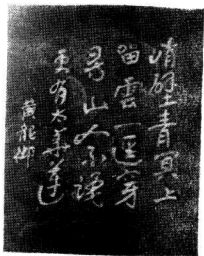 峭壁青冥上
雲一逕穿
尋山人不
更有太華蓮
黃龍